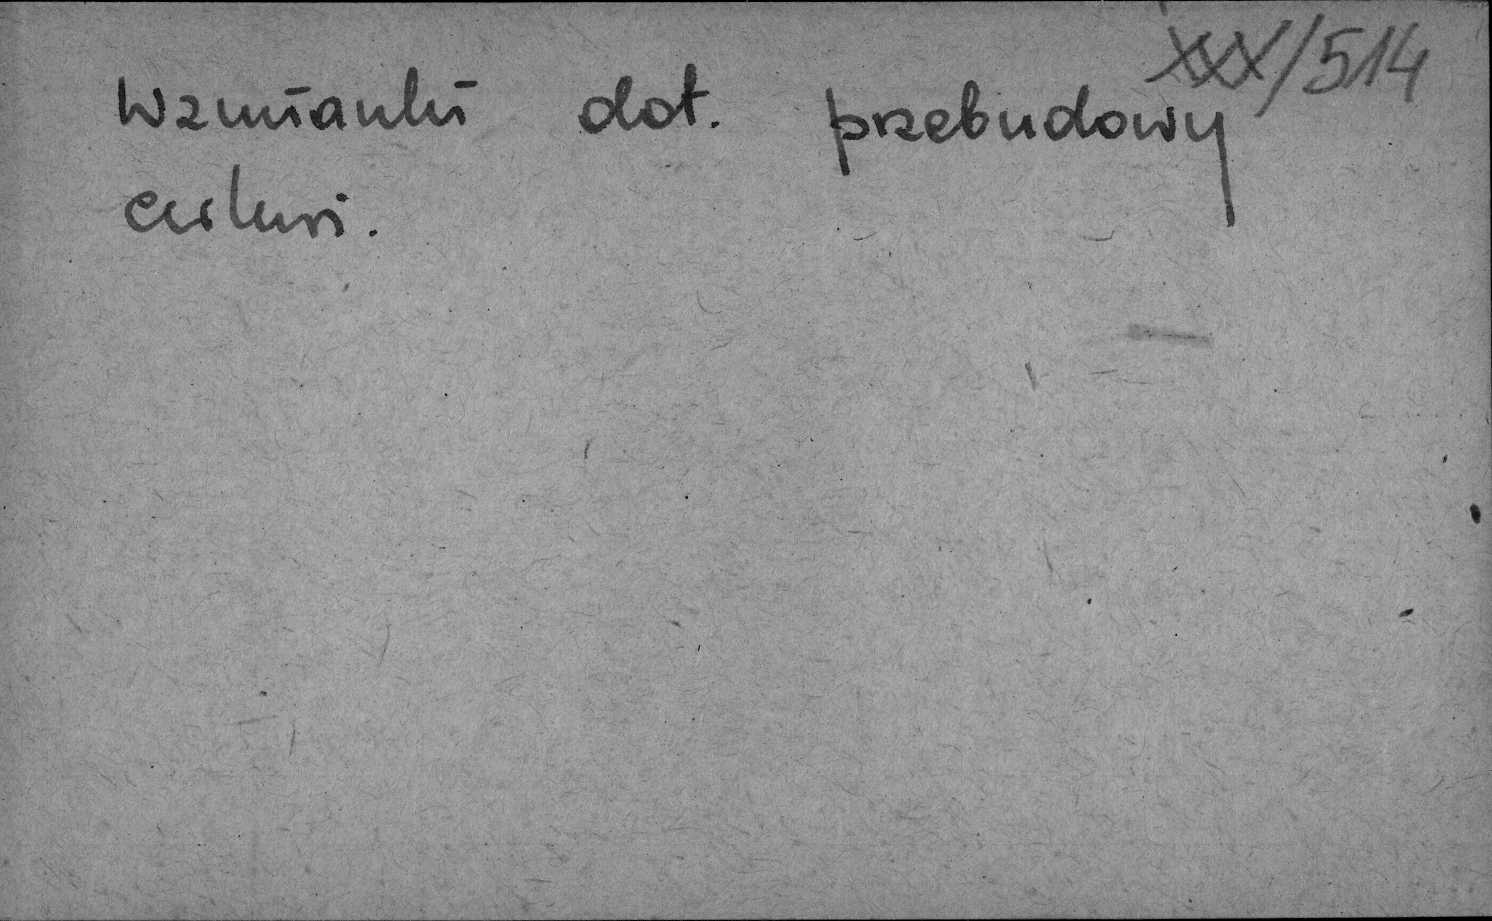 XXX/514
Wzmianki dot. przebudowy
cerkwi.